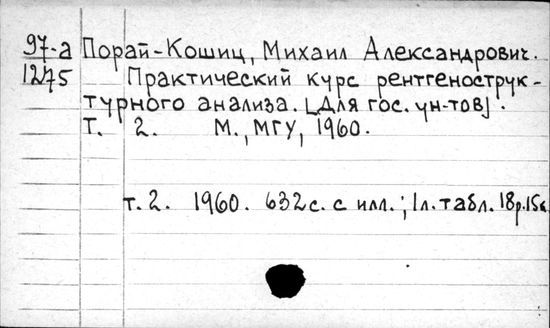 97-а Порай-Кошиц, Михаил Александрович.
1275 Практический курс рентгенострук-
турного анализа. [Для гос. ун-тов].
Т. 2. М., МГУ, 1960.
т. 2. 1960. 632 с. с илл.; 1 л. табл. 18р. 15к